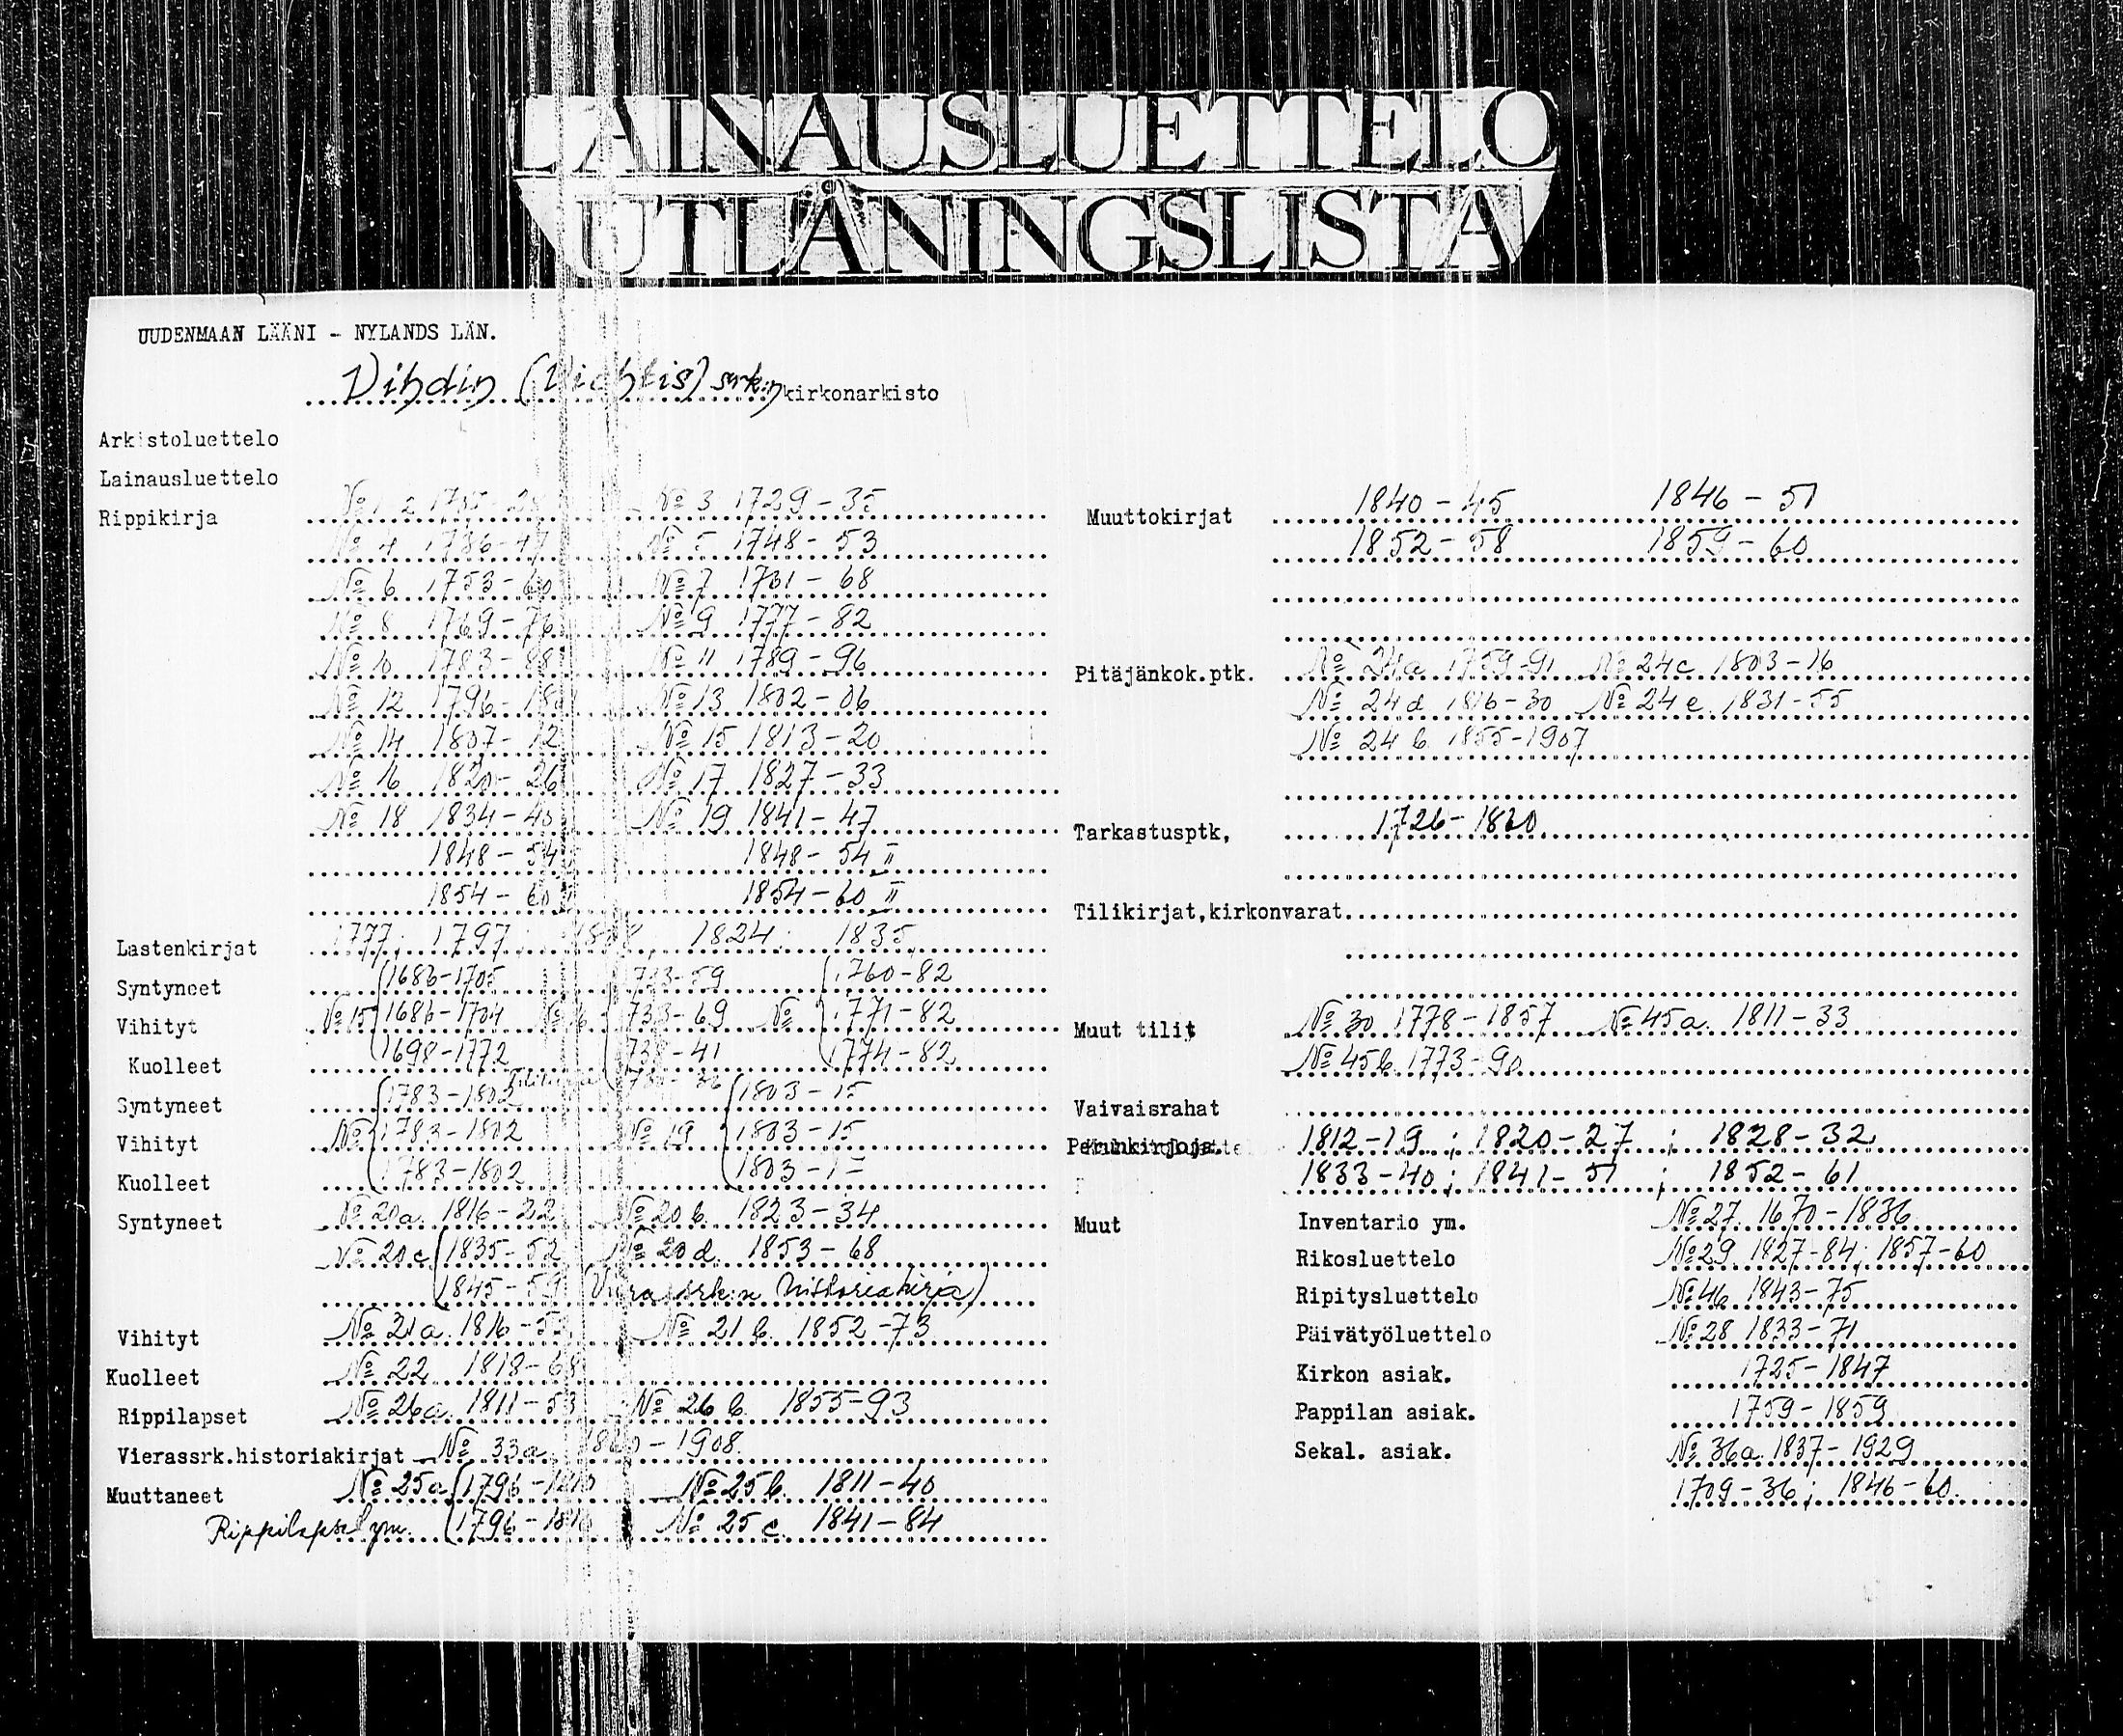 LAINAUSLUETTELO
UTLÅNINGSLISTA
UUDENMAAN LÄÄNI - NYLANDS LÄN.
Vihdin (Vichtis) srk:n kirkonarkisto
Arkistoluettelo
Lainausluettelo
Rippikirja № 3 1729-35
№ 4 № 5 1748-53
№ 6 1753-60 № 7 1761-68
№ 8 1769-76 № 9 1777-82
№ 10 1783-88 № 11 1789-96
№ 12 1796- № 13 1802-06
№ 14 1807-12 № 15 1813-20
№ 16 1820-26 № 17 1827-33
№ 18 1834-40 № 19 1841-47
1848-54 1848-54 II
1854-60 1854-60 II
Lastenkirjat 1777; 1797; 1824; 1835
Syntyneet 1686-1705 1733-59 1760-82
Vihityt № 15 1686-1704 1733-69 № 1771-82
Kuolleet 1698-1772 1738-41 1774-82
Syntyneet 1783-1802 1803-15
Vihityt № 1783-1802 № 19 1803-15
Kuolleet 1783-1802 1803-15
Syntyneet № 20a. 1816-22 № 20b. 1823-34
№ 20c 1835-52 № 20d. 1853-68
1845-59 (Vieras srk:n historiakirja)
Vihityt № 21a. 1816- № 21b. 1852-73
Kuolleet № 22 1818-68
Rippilapset № 26a. 1811-53 № 26b. 1853-93
Vierassrk.historiakirjat № 33a. -1908.
Muuttaneet № 25a 1796-1810 № 25b. 1811-40
Rippilapset ym. 1796-1810 № 25c. 1841-84
Muuttokirjat 1840-45 1846-51
1852-58 1859-60
Pitäjänkok.ptk. № 24a 1759-91 № 24c 1803-16
№ 24d. 1816-30 № 24e. 1831-55
№ 24b. 1855-1907
Tarkastusptk, 1726-1820
Tilikirjat,kirkonvarat
Muut tilit № 30 1778-1857 № 45a. 1811-33
№ 45b. 1773-90
Vaivaisrahat
Perunkirjoja. 1812-19; 1820-27; 1828-32
1833-40; 1841-51; 1852-61
Muut Inventario ym. № 27. 1670-1836
Rikosluettelo № 29 1827-84; 1857-60
Ripitysluettelo № 46 1843-75
Päivätyöluettelo № 28 1833-71
Kirkon asiak. 1725-1847
Pappilan asiak. 1759-1859
Sekal. asiak. № 36a 1837-1929
1709-36; 1846-60.